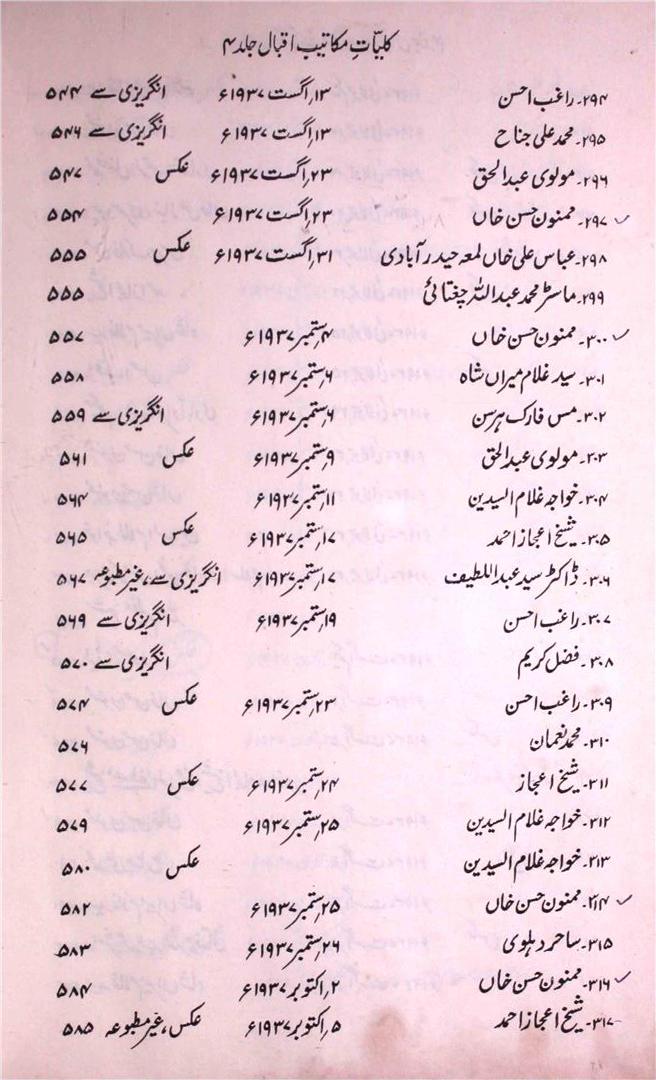 کلیاتِ مکاتیب اقبال جلد ۴
۲۹۴۔ راغب احسن ۱۳؍اگست ۱۹۳۷ء انگریزی سے ۵۴۴
۲۹۵۔ محمد علی جناح ۱۳؍اگست ۱۹۳۷ء انگریزی سے ۵۴۶
۲۹۶۔ مولوی عبدالحق ۲۳؍اگست ۱۹۳۷ء عکس ۵۴۷
۲۹۷۔ ممنون حسن خاں ۲۳؍اگست ۱۹۳۷ء ۵۵۴
۲۹۸۔ عباس علی خاں لمعہ حیدرآبادی ۳۱؍اگست ۱۹۳۷ء عکس ۵۵۵
۲۹۹۔ ماسٹر محمد عبداللہ چغتائی ۵۵۵
۳۰۰۔ ممنون حسن خاں ۴؍ستمبر ۱۹۳۷ء ۵۵۷
۳۰۱۔ سید غلام میراں شاہ ۶؍ستمبر ۱۹۳۷ء ۵۵۸
۳۰۲۔ مس فارک ہرسن ۶؍ستمبر ۱۹۳۷ء انگریزی سے ۵۵۹
۳۰۳۔ مولوی عبدالحق ۹؍ستمبر ۱۹۳۷ء عکس ۵۶۱
۳۰۴۔ خواجہ غلام السیدین ۱۱؍ستمبر ۱۹۳۷ء ۵۶۴
۳۰۵۔ شیخ اعجاز احمد ۱۷؍ستمبر ۱۹۳۷ء عکس ۵۶۵
۳۰۶۔ ڈاکٹر سید عبداللطیف ۱۷؍ستمبر ۱۹۳۷ء انگریزی سے، غیر مطبوعہ ۵۶۷
۳۰۷۔ راغب احسن ۱۹؍ستمبر ۱۹۳۷ء انگریزی سے ۵۶۹
۳۰۸۔ فضل کریم انگریزی سے ۵۷۰
۳۰۹۔ راغب احسن ۲۳؍ستمبر ۱۹۳۷ء عکس ۵۷۴
۳۱۰۔ محمد نعمان ۵۷۶
۳۱۱۔ شیخ اعجاز ۲۴؍ستمبر ۱۹۳۷ء عکس ۵۷۷
۳۱۲۔ خواجہ غلام السیدین ۲۵؍ستمبر ۱۹۳۷ء ۵۷۹
۳۱۳۔ خواجہ غلام السیدین عکس ۵۸۰
۳۱۴۔ ممنون حسن خاں ۲۵؍ستمبر ۱۹۳۷ء ۵۸۲
۳۱۵۔ ساحر دہلوی ۲۶؍ستمبر ۱۹۳۷ء ۵۸۳
۳۱۶۔ ممنون حسن خاں ۲؍اکتوبر ۱۹۳۷ء ۵۸۴
۳۱۷۔ شیخ اعجاز احمد ۵؍اکتوبر ۱۹۳۷ء عکس، غیر مطبوعہ ۵۸۵